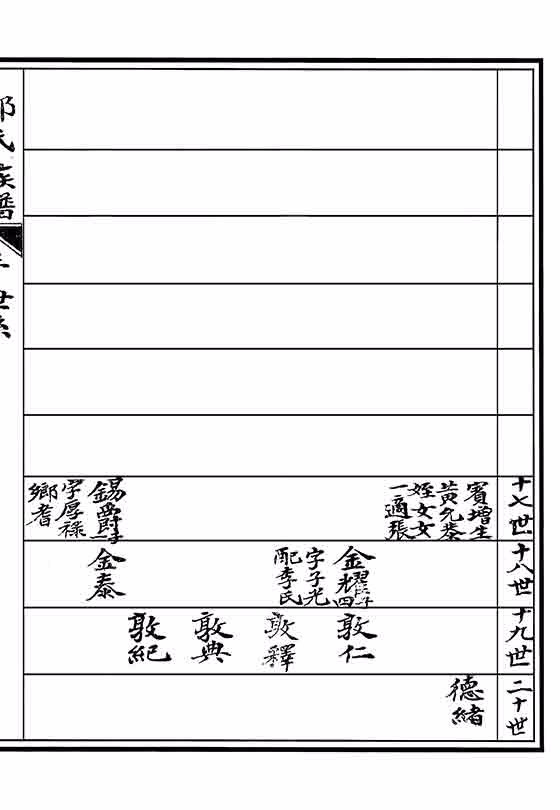 十七世
賓增生
黃允恭
姪女女
一適張
錫爵一子
字厚祿
鄉耆
十八世
金耀四子
字子光
配李氏
金泰
十九世
敦仁
敦釋
敦典
敦紀
二十世
德緒
氏族譜
世系